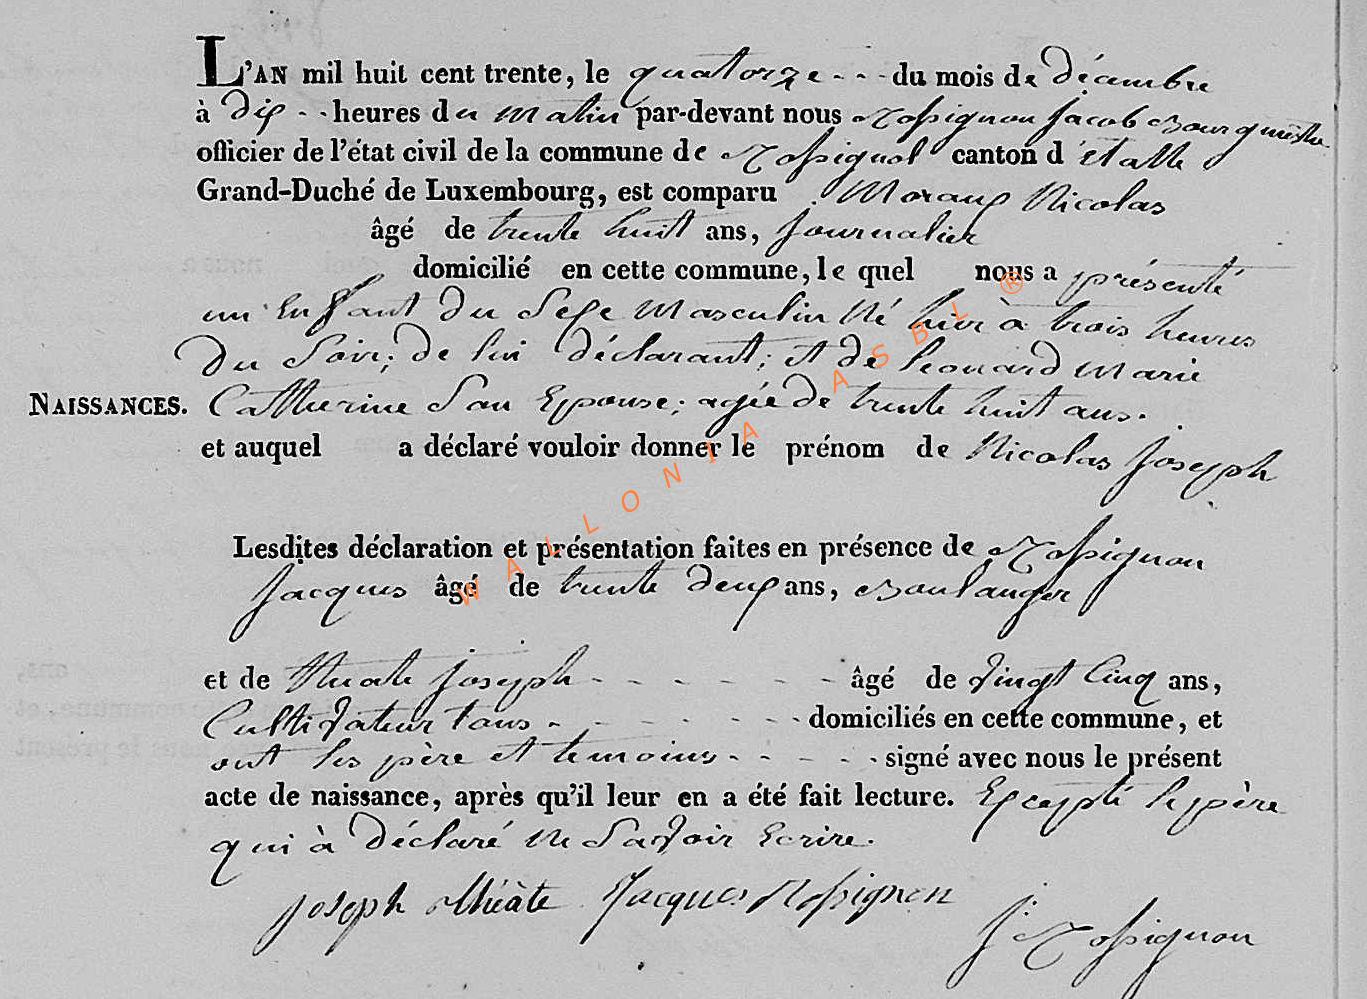 L'AN mil huit cent trente, le quatorze - - - du mois de décembre
à dix - - heures du matin par-devant nous Rossignon Jacob Bourgmestre
officier de l'état civil de la commune de Rossignol canton d'Etalle
Grand-Duché de Luxembourg, est comparu Moraux Nicolas
âgé de trente huit ans, journalier
domicilié en cette commune, le quel nous a présenté
un Enfant du Sexe Masculin Né hier à trois heures
du Soir; de lui déclarant; et de Leonard Marie
NAISSANCES. Catherine Son Epouse; agée de trente huit ans.
et auquel a déclaré vouloir donner le prénom de Nicolas Joseph
Lesdites déclaration et présentation faites en présence de Rossignon
Jacques âgé de trente deux ans, Boulanger
et de Joseph - - - - - - - âgé de Vingt Cinq ans,
Cultivateur tous - - - - - - - domiciliés en cette commune, et
ont les père et temoins - - - - - signé avec nous le présent
acte de naissance, après qu'il leur en a été fait lecture. Excepté le père
qui à déclaré Ne Savoir Ecrire.
Joseph Jacques Rossignon
J Rossignon
WALLONIA ASBL ®